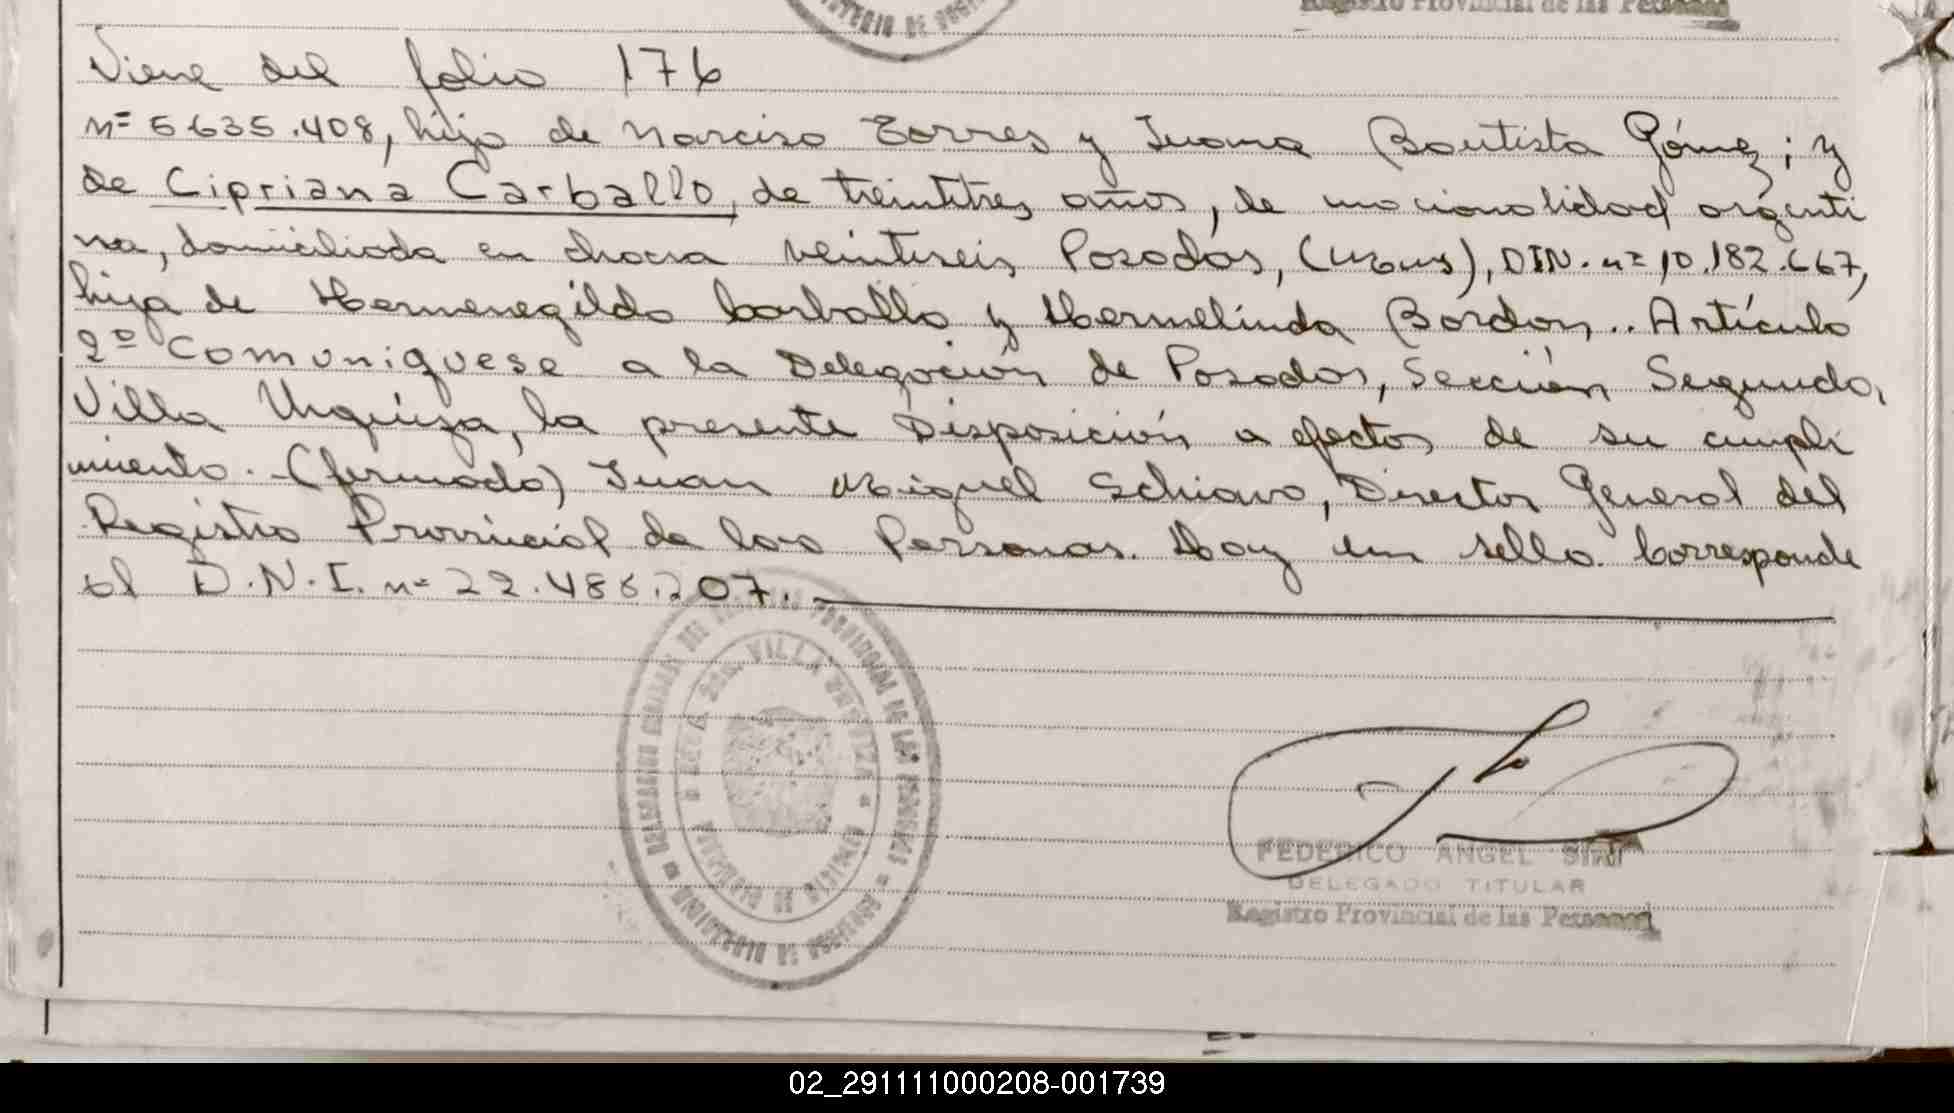 Registro Provincial de las Personas
Viene del folio 176
nº 5.635.408, hijo de Narciso Torres y Juana Bautista Gómez; y
de Cipriana Carballo, de treintitres años, de nacionalidad argenti
na, domiciliada en chacra veintiseis, Posadas, (Mnes), DIN. nº 10.182.667,
hija de Hermenegildo Carballo y Hermelinda Bordon.. Artículo
2º Comuniquese a la Delegación de Posadas, Sección Segunda,
Villa Urquiza, la presente Disposición a efectos de su cumpli
miento. (firmado) Juan Miguel Schiavo, Director General del
Registro Provincial de las Personas. Hay un sello. Corresponde
al D.N.I. nº 22.486.207.
VILLA URQUIZA
FEDERICO ANGEL
DELEGADO TITULAR
Registro Provincial de las Personas
02_291111000208-001739